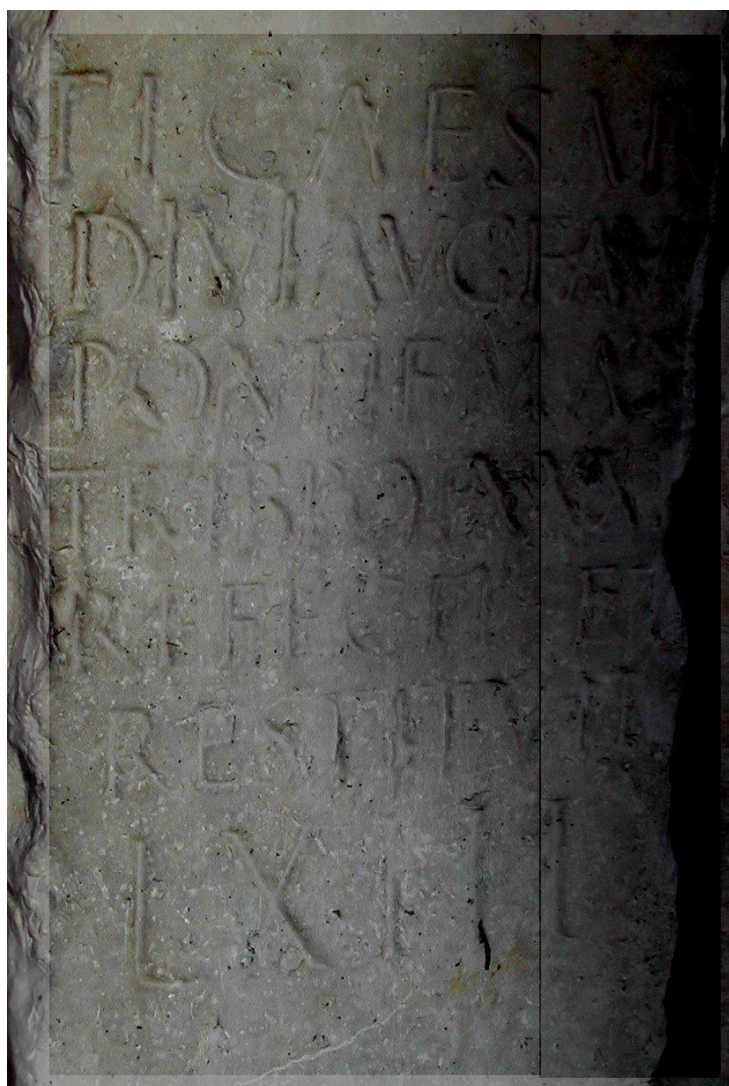 TI CAESAR
DIVI AVG F AV
PONTIF MA
TRIB POT
REFECIT ET
RESTITVIT
LXIII